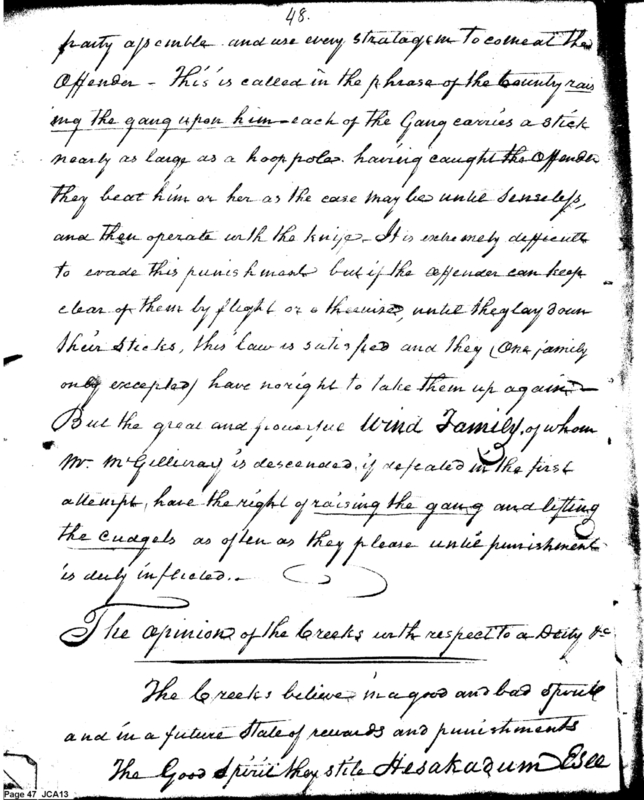 48.
party assemble and use every stratagem to come at the
Offender – This is called in the phrase of the Country rais
ing the gang upon him – each of the Gang carries a stick
nearly as large as a hoop pole. having caught the Offender
they beat him or her as the case may be until senseless,
and then operate with the knife – It is extremely difficult
to evade this punishment but if the offender can keep
clear of them by flight or otherwise, until they lay down
their sticks, this law is satisfied and they (One family
only excepted) have no right to take them up again –
But the great and powerful Wind Family, of whom
Mr. McGillivray is descended, if defeated in the first
attempt, have the right of raising the gang and lifting
the cudgels as often as they please until punishment
is duly inflicted. –
The Opinion of the Creeks with respect to a Deity &c
The Creeks believe in a good and bad Spirit
and in a future State of rewards and punishments
The Good Spirit they stile Hesakadum Esee
Page 47 JCA13